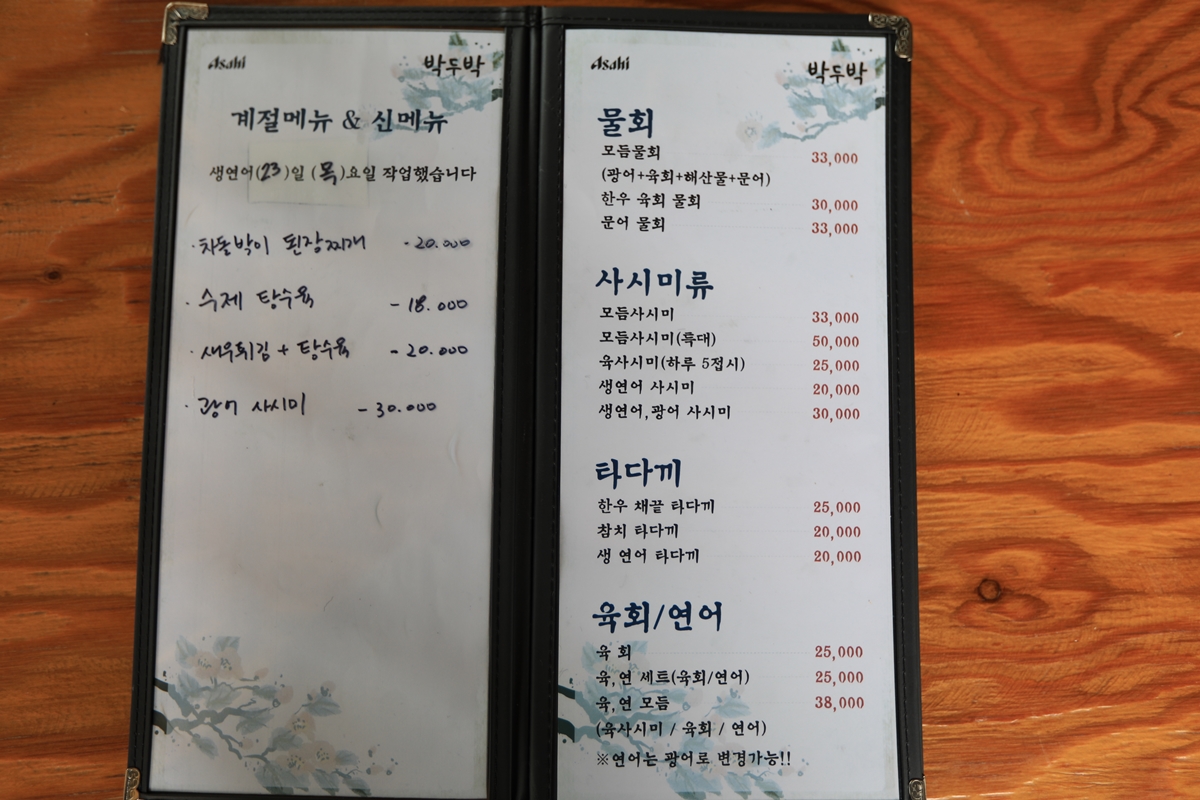 Asahi
박두박
계절메뉴 & 신메뉴
생연어(23)일 (목)요일 작업했습니다
· 차돌박이 된장찌개 - 20.000
· 수제 탕수육 - 18.000
· 새우튀김 + 탕수육 - 20.000
· 광어 사시미 - 30.000
Asahi
박두박
물회
모듬물회 33,000
(광어+육회+해산물+문어)
한우 육회 물회 30,000
문어 물회 33,000
사시미류
모듬사시미 33,000
모듬사시미(특대) 50,000
육사시미(하루 5접시) 25,000
생연어 사시미 20,000
생연어,광어 사시미 30,000
타다끼
한우 채끝 타다끼 25,000
참치 타다끼 20,000
생 연어 타다끼 20,000
육회/연어
육 회 25,000
육,연 세트(육회/연어) 25,000
육,연 모듬 38,000
(육사시미 / 육회 / 연어)
※연어는 광어로 변경가능!!